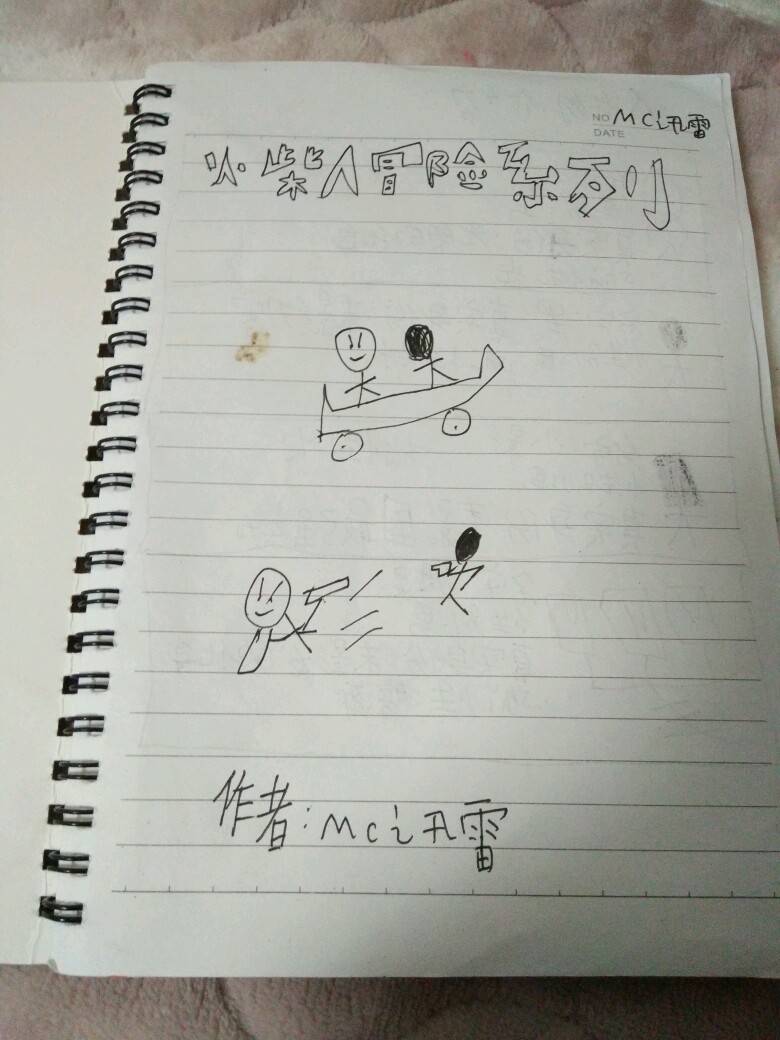 NO MC讯雷
DATE
火柴人冒险系列
作者:MC讯雷